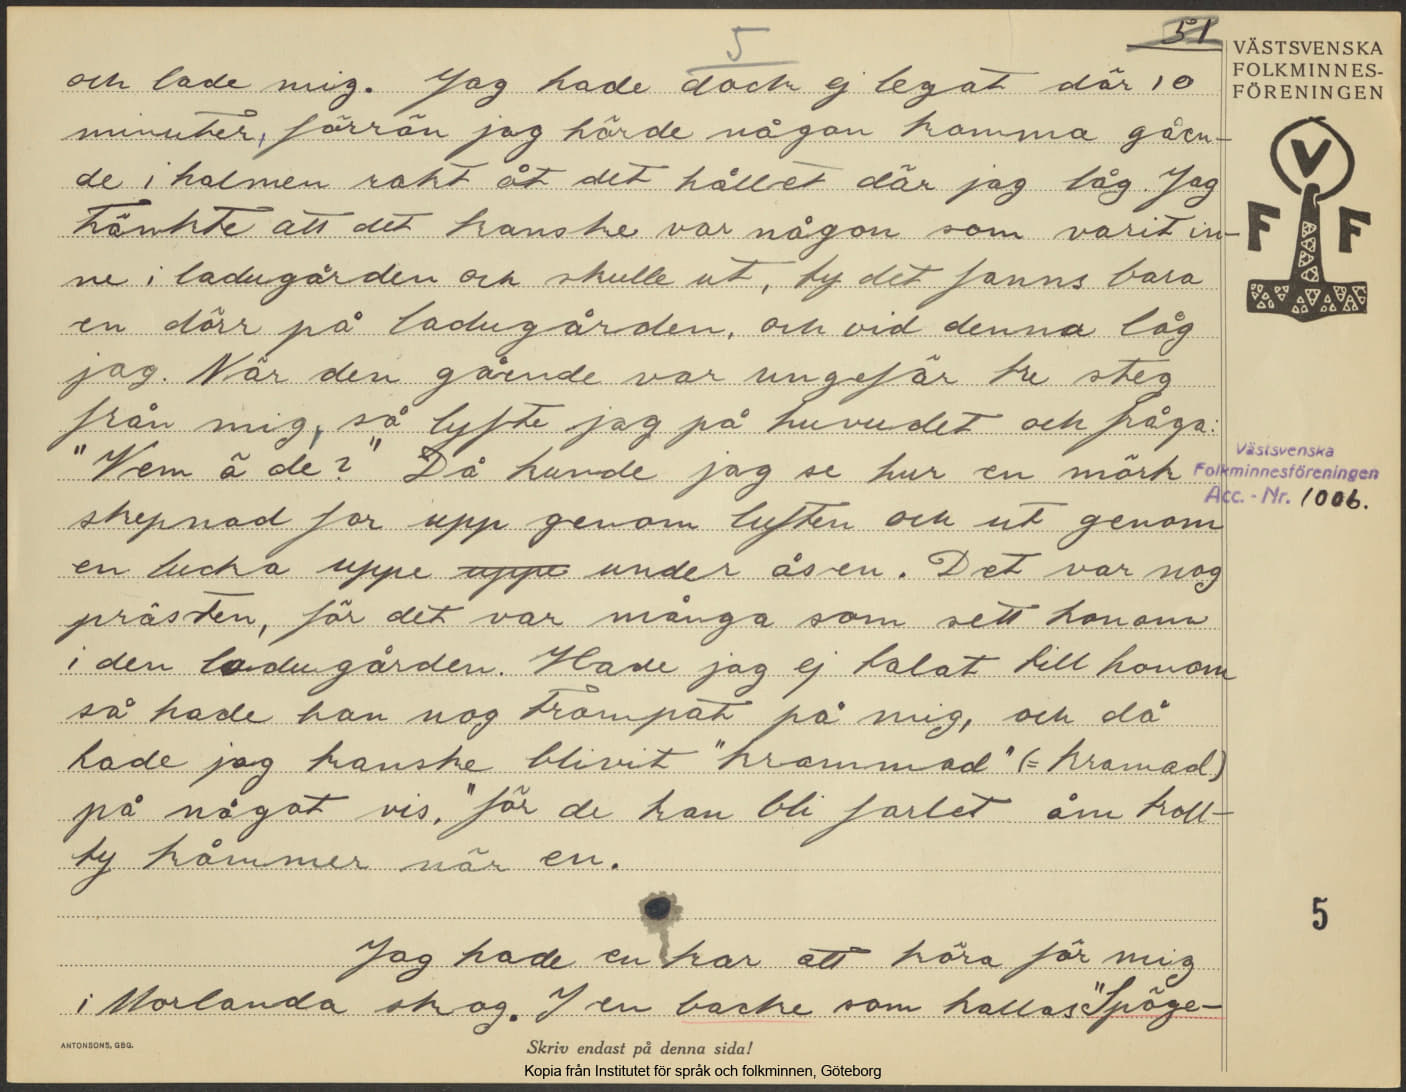 5
51
VÄSTSVENSKA
FOLKMINNES-
FÖRENINGEN
och lade mig. Jag hade dock ej legat där 10
minuter, förrän jag hörde någon komma gåen-
de i halmen rakt åt det hållet där jag låg. Jag
tänkte att det kanske var någon som varit in-
ne i ladugården och skulle ut, ty det fanns bara
en dörr på ladugården, och vid denna låg
jag. När den gående var ungefär tre steg
från mig, så lyfte jag på huvudet och fråga:
"Vem ä de?" Då kunde jag se hur en mörk
skepnad for upp genom luften och ut genom
en lucka uppe uppe under åsen. Det var nog
prästen, för det var många som sett honom
i den ladugården. Hade jag ej talat till honom
så hade han nog trampat på mig, och då
hade jag kanske blivit "krammad" (= kramad)
på något vis, "för de kan bli farlet åm troll-
ty kåmmer när en.
Jag hade en kar att köra för mig
i Morlanda skog. I en backe som kallas "Spöge-
V
F F
Västsvenska
Folkminnesföreningen
Acc.-Nr. 1006.
5
ANTONSONS, GBG.
Skriv endast på denna sida!
Kopia från Institutet för språk och folkminnen, Göteborg